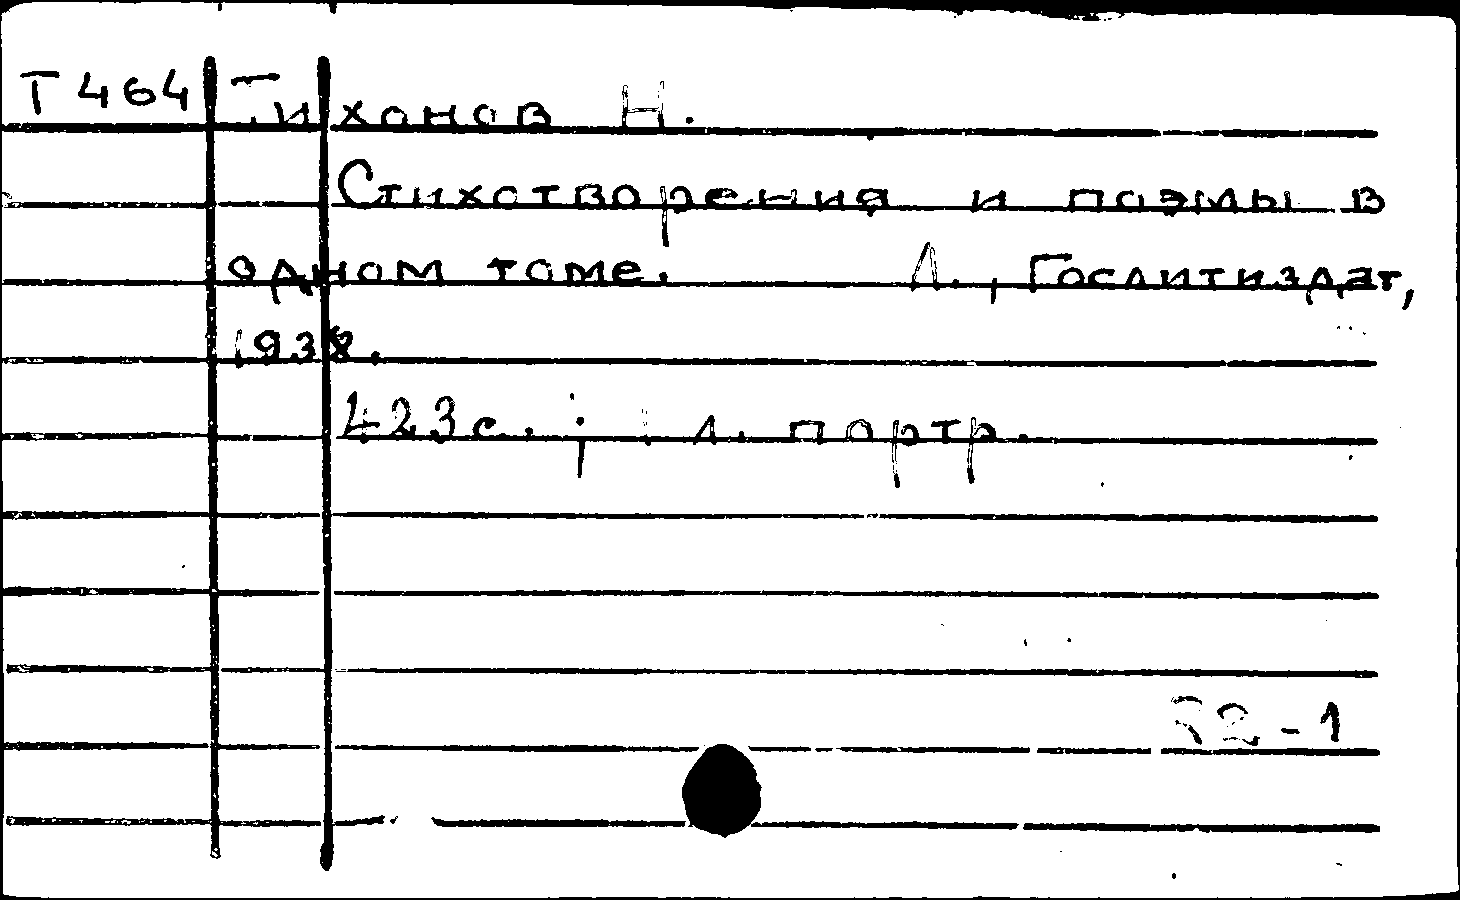 Т 464 Тихонов Н.
Стихотворения и поэмы в
одном томе. Л., Гослитиздат,
1938.
423с. ; 1 л. портр.
52-1